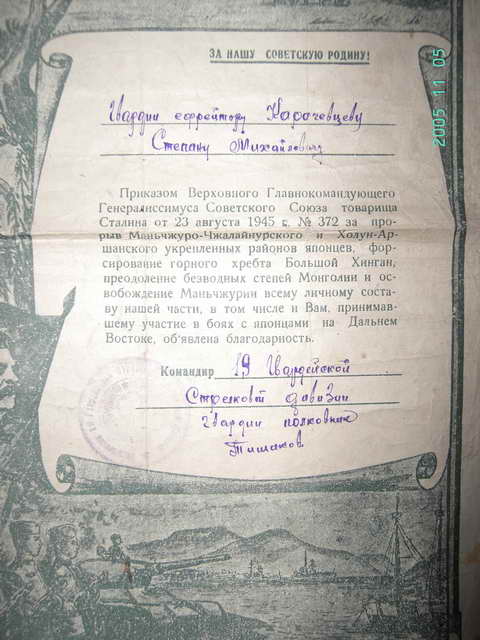 ЗА НАШУ СОВЕТСКУЮ РОДИНУ!
Гвардии ефрейтору Карачевцеву
Степану Михайловичу
Приказом Верховного Главнокомандующего
Генералиссимуса Советского Союза товарища
Сталина от 23 августа 1945 г. № 372 за про-
рыв Маньчжуро-Чжалайнурского и Холун-Ар-
шанского укрепленных районов японцев, фор-
сирование горного хребта Большой Хинган,
преодоление безводных степей Монголии и ос-
вобождение Маньчжурии всему личному соста-
ву нашей части, в том числе и Вам, принимав-
шему участие в боях с японцами на Дальнем
Востоке, об'явлена благодарность.
Командир 19 Гвардейской
Стрелковой дивизии
Гвардии полковник
2005 11 05